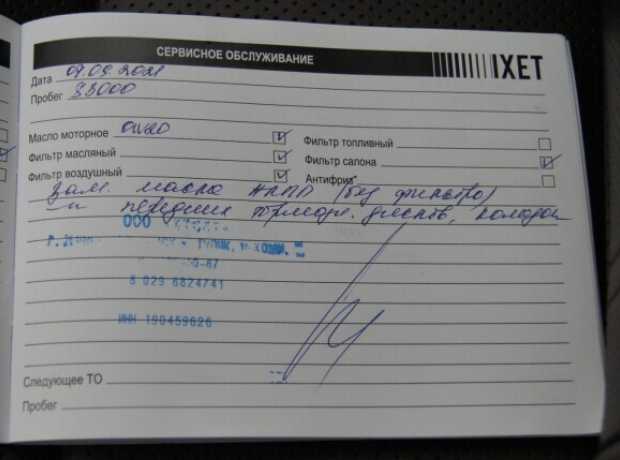 СЕРВИСНОЕ ОБСЛУЖИВАНИЕ
IXET
Дата 07.09.2021
Пробег 33000
Масло моторное 0W20
Фильтр топливный
Фильтр масляный
Фильтр салона
Фильтр воздушный
Антифриз
Зам. масла АКПП (без фильтра)
передних тормозн. колодок
ООО
8 029 6824741
ИНН 190459626
Следующее ТО
Пробег